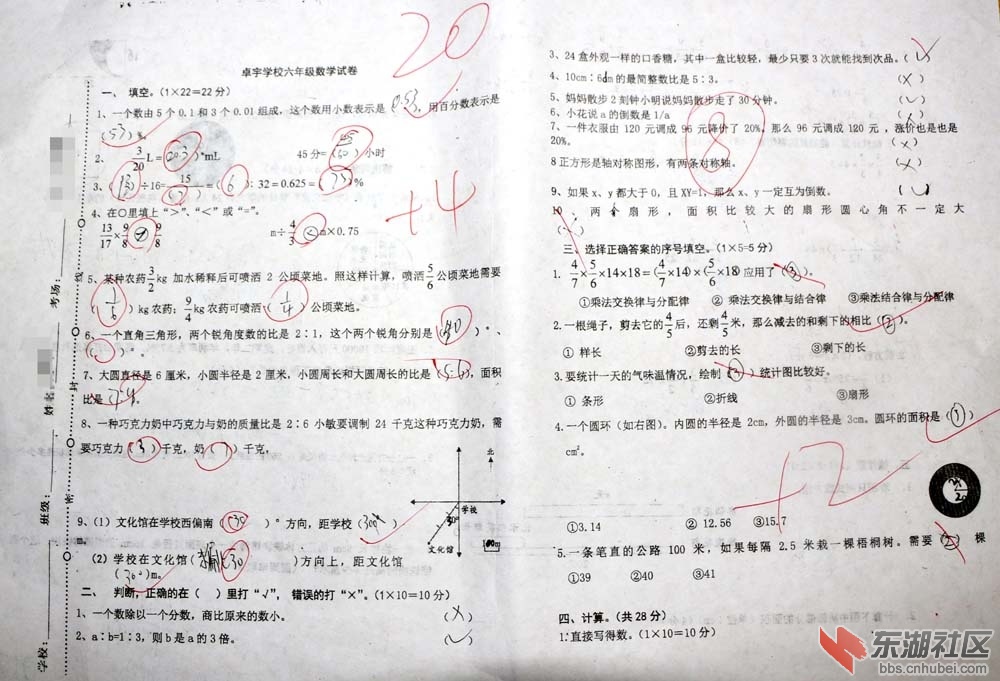 20
卓宇学校六年级数学试卷
一、 填空。（1×22=22分）
1、一个数由5个0.1和3个0.01组成，这个数用小数表示是 0.53，用百分数表示是
（53）%。
2、 3/20 L=（20.3）*mL 45分=（）小时
3、（）÷16= 15/（） =（6）∶32=0.625=（）%
+4
4、在〇里填上“>”、“<”或“=”。
13/17 × 9/8 〇 9/8 m÷4/3 〇 m×0.75
5、某种农药3/2 kg 加水稀释后可喷洒 2 公顷菜地。照这样计算，喷洒5/6公顷菜地需要
（1/6）kg农药；9/4 kg农药可喷洒（1/4）公顷菜地。
6、一个直角三角形，两个锐角度数的比是 2∶1，这两个锐角分别是（）°、
（）°。
7、大圆直径是6厘米，小圆半径是2厘米，小圆周长和大圆周长的比是（），面积
比是（）。
8、一种巧克力奶中巧克力与奶的质量比是 2∶6 小敏要调制 24 千克这种巧克力奶，需
要巧克力（3）千克，奶（1）千克，
北
学校
30°
文化馆
9、（1）文化馆在学校西偏南（30）°方向，距学校（300）
m。
（2）学校在文化馆（30）方向上，距文化馆
（300）m。
二、 判断，正确的在（ ）里打“√”， 错误的打“×”。（1×10=10分）
1、一个数除以一个分数，商比原来的数小。 （×）
2、a∶b=1∶3，则b是a的3倍。 （√）
3、24盒外观一样的口香糖，其中一盒比较轻，最少只要3次就能找到次品。（√）
4、10cm∶6dm的最简整数比是5∶3。 （×）
5、妈妈散步2刻钟小明说妈妈散步走了30分钟。 （×）
6、小花说a的倒数是1/a （×）
7、一件衣服由 120 元调成 96 元降价了 20%，那么 96 元调成 120 元 ，涨价也是也是
20%。 （×）
8
8正方形是轴对称图形，有两条对称轴。 （×）
9、如果x、y都大于0，且XY=1，那么x、y一定互为倒数。 （√）
10 两个扇形，面积比较大的扇形圆心角不一定大
（）
三、选择正确答案的序号填空。（1×5=5分）
1. 4/7×5/6×14×18=（4/7×14）×（5/6×18）应用了（3）。
①乘法交换律与分配律 ② 乘法交换律与结合律 ③乘法结合律与分配律
2.一根绳子，剪去它的4/5后，还剩4/5米，那么减去的和剩下的相比（2）。
① 样长 ②剪去的长 ③剩下的长
3.要统计一天的气味温情况，绘制（）统计图比较好。
① 条形 ②折线 ③扇形
4.一个圆环（如右图）。内圆的半径是 2cm，外圆的半径是 3cm。圆环的面积是（1）
cm²。
+2
①3.14 ② 12.56 ③15.7
5.一条笔直的公路 100 米，如果每隔 2.5 米栽一棵梧桐树。需要（）棵
①39 ②40 ③41
四、计算。（共28分）
1.直接写得数。（1×10=10分）
学校：
班级：
姓名：
考场：
密
封
线
东湖社区
bbs.cnhubei.com